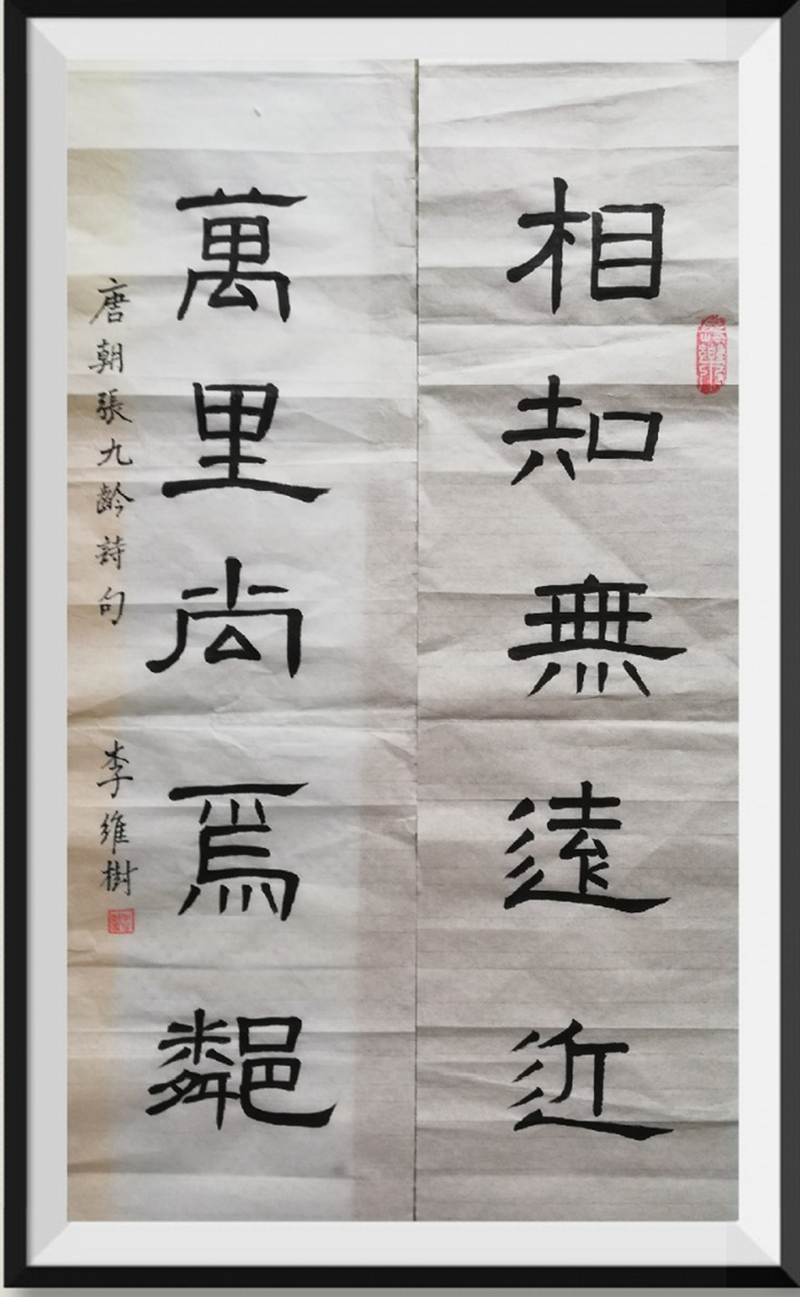 相知無遠近
萬里尚焉鄰
唐朝張九齡詩句
李維樹